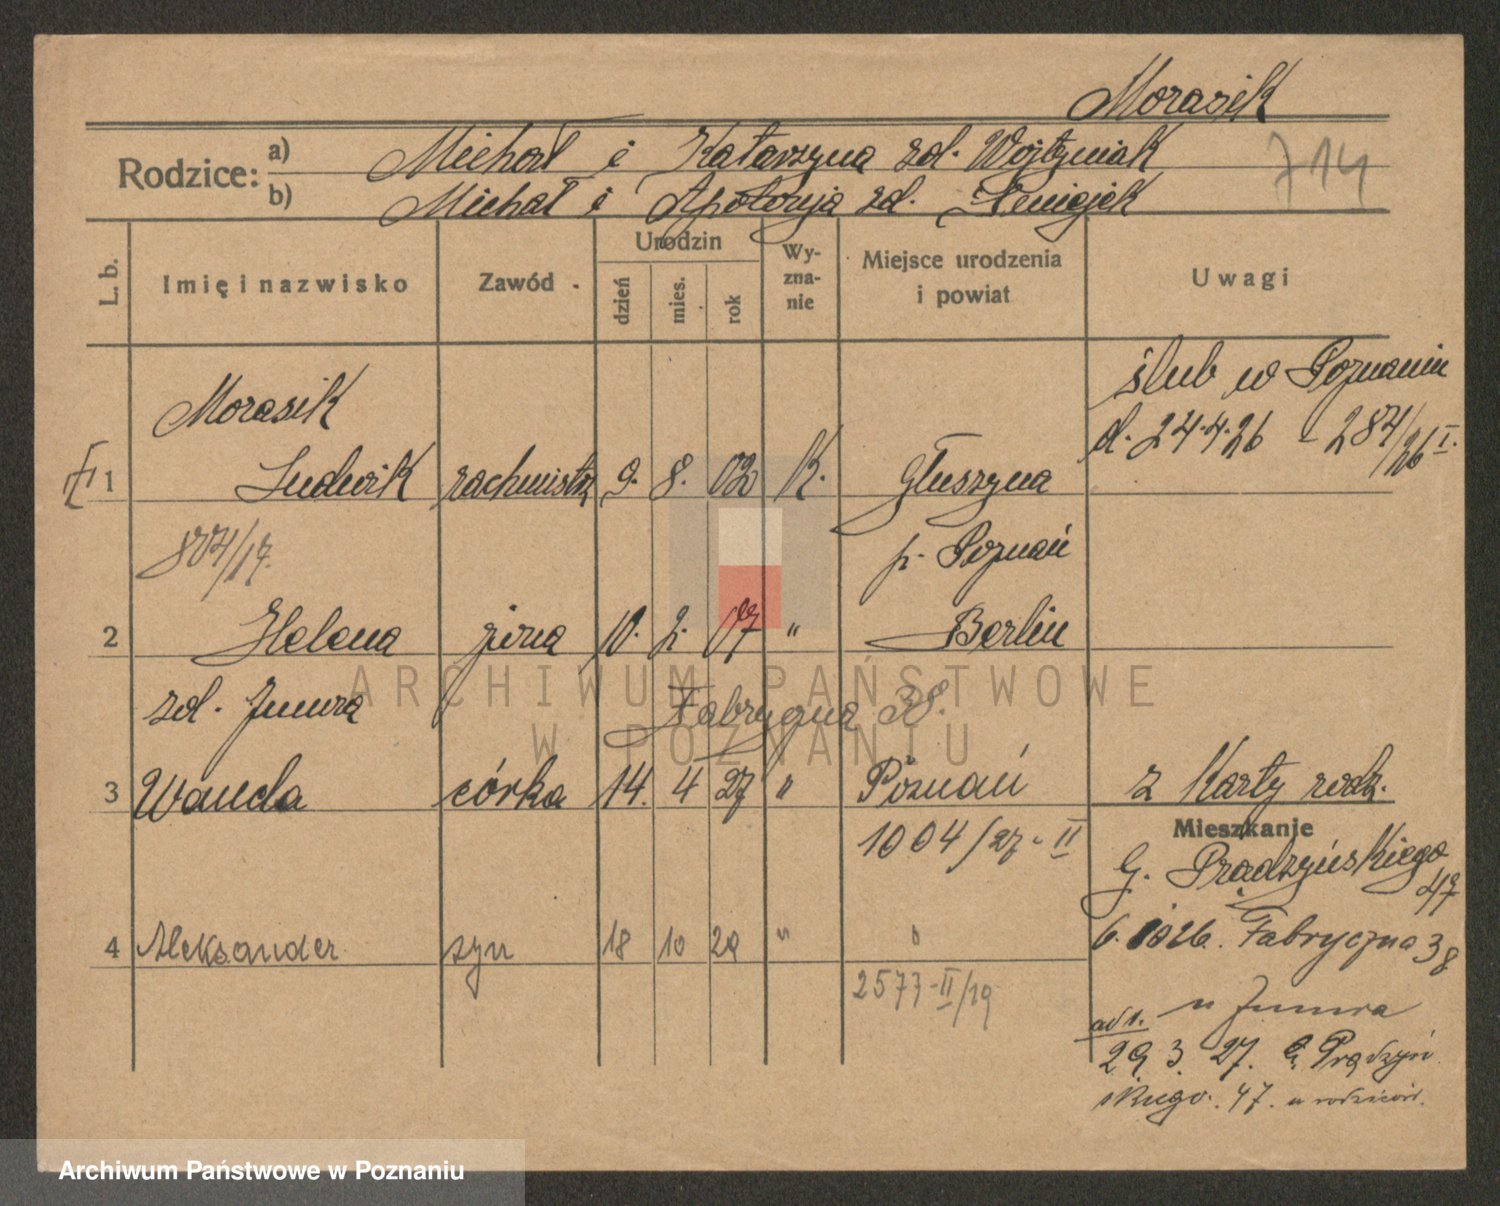 Morasik
Rodzice: a) Michał i Katarzyna zd. Wojtyniak
b) Michał i Apolonja zd.
714
L. b. Imię i nazwisko Zawód Urodzin Wyznanie Miejsce urodzenia i powiat Uwagi
dzień mies. rok
ślub w Poznaniu
d. 24.4.26 - 284/26 I.
Morasik
1 Ludwik rachmistrz 9. 8. 02 K. Głuszyna
874/17. p. Poznań
2 Helena żona 10. 2. 07 " Berlin
zd. Jumra Fabryczna 38.
3 Wanda córka 14. 4 27 " Poznań z Karty rodz.
1004/27 - II
Mieszkanie
G. Prądzyńskiego 47
4 Aleksander syn 18 10 29 " " 6. 1926. Fabryczna 38
2577-II/19
u Jumra
ad 1.
29. 3. 27. G. Prądzyń
skiego. 47. u rodziców.
ARCHIWUM PAŃSTWOWE
W POZNANIU
Archiwum Państwowe w Poznaniu